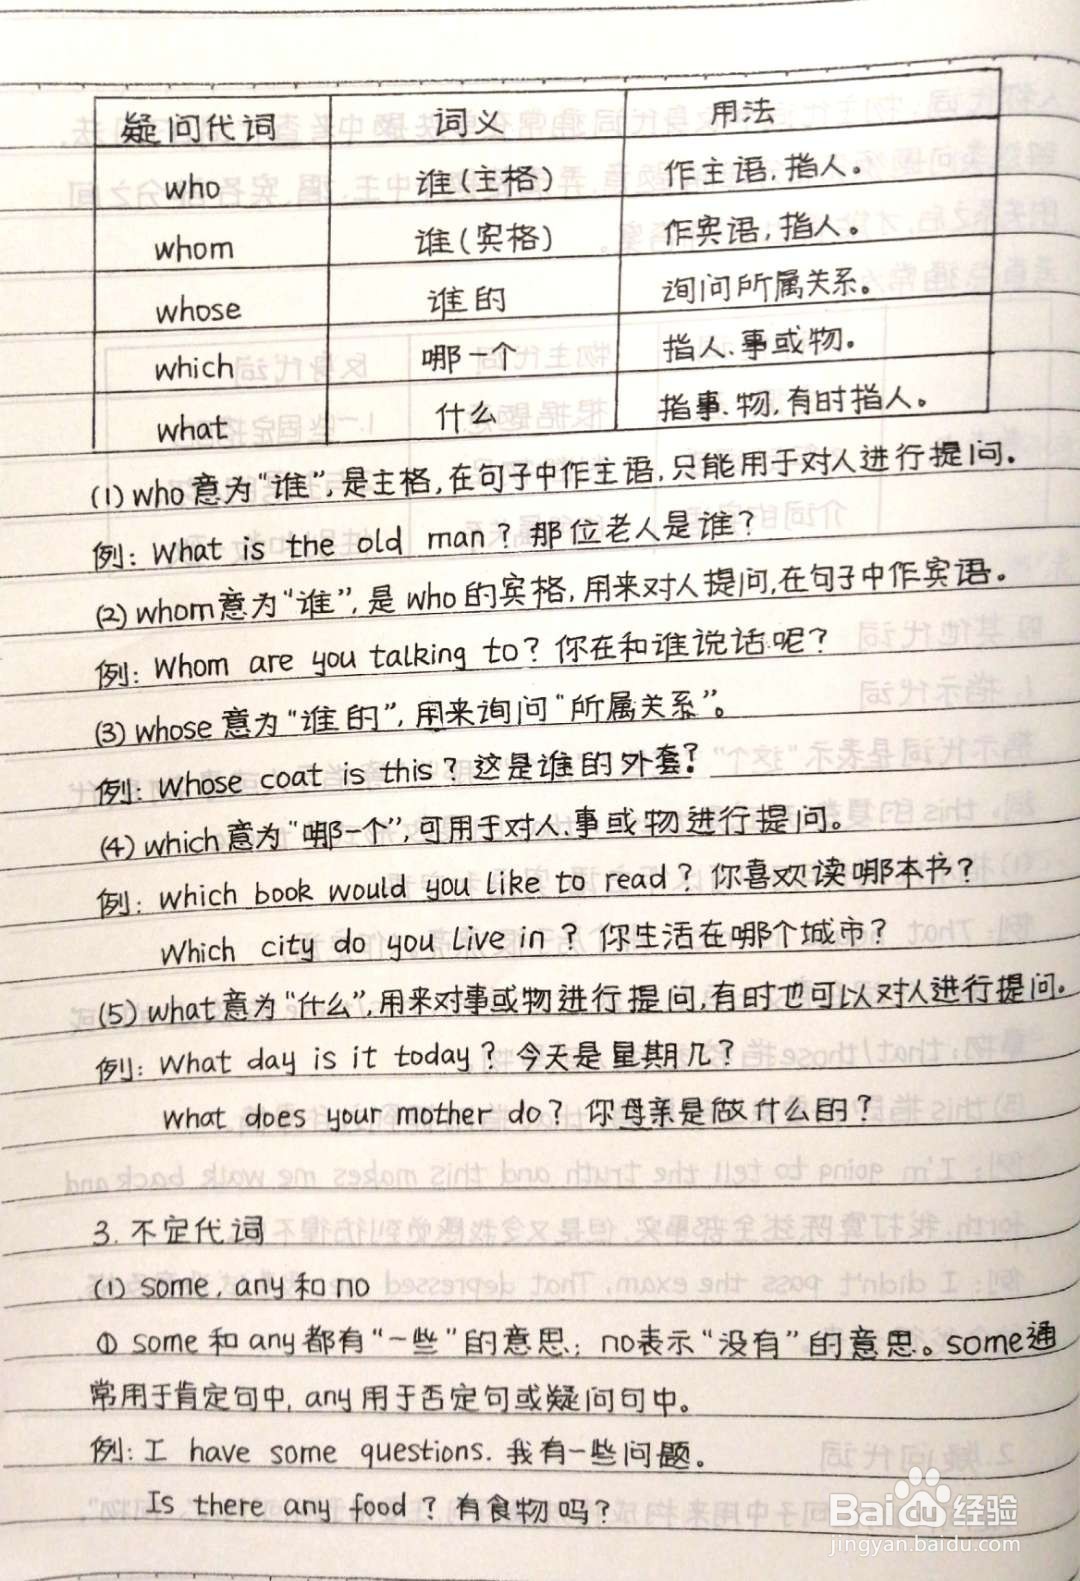 疑问代词 词义 用法
who 谁(主格) 作主语,指人。
whom 谁(宾格) 作宾语,指人。
whose 谁的 询问所属关系。
which 哪一个 指人、事或物。
what 什么 指事、物,有时指人。
(1) who意为“谁”,是主格,在句子中作主语,只能用于对人进行提问.
例: What is the old man? 那位老人是谁?
(2) whom意为“谁”,是who的宾格,用来对人提问,在句子中作宾语。
例: Whom are you talking to? 你在和谁说话呢?
(3) whose意为“谁的”,用来询问“所属关系”。
例: Whose coat is this? 这是谁的外套?
(4) which意为“哪一个”,可用于对人、事或物进行提问。
例: Which book would you like to read? 你喜欢读哪本书?
Which city do you live in? 你生活在哪个城市?
(5) what意为“什么”,用来对事或物进行提问,有时也可以对人进行提问.
例: What day is it today? 今天是星期几?
What does your mother do? 你母亲是做什么的?
3. 不定代词
(1) some, any和no
① some和any都有“一些”的意思; no表示“没有”的意思。some通
常用于肯定句中, any用于否定句或疑问句中。
例: I have some questions. 我有一些问题。
Is there any food? 有食物吗?
Baidu 经验
jingyan.baidu.com